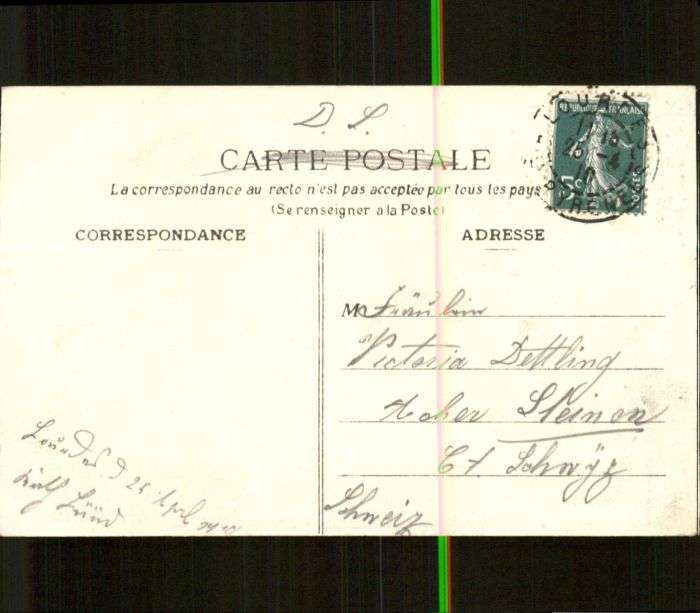 D. S.
CARTE POSTALE
La correspondance au recto n'est pas acceptée par tous les pays
(Se renseigner à la Poste)
CORRESPONDANCE
ADRESSE
REPUBLIQUE FRANÇAISE
5c
POSTES
M Fräulein
Victoria Dettling
Acher Steinen
Ct. Schwyz
Schweiz
Lourdes d 25 April 1910